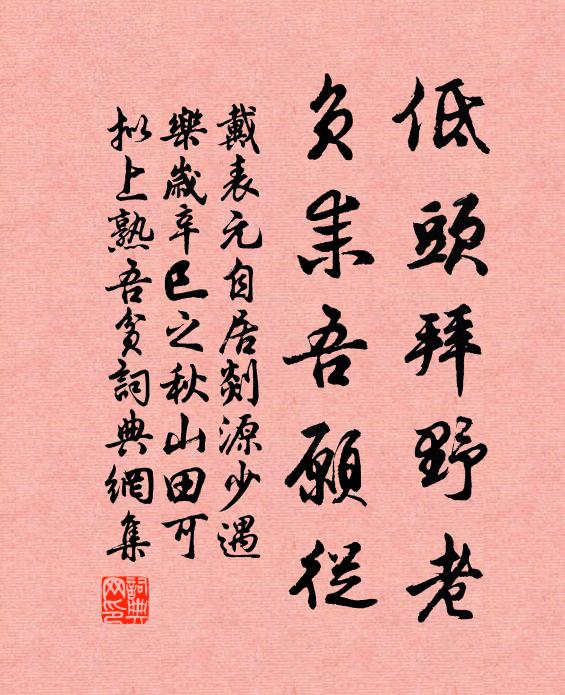 低頭拜野老
負耒吾願從
戴表元自居剡源少遇
樂歲辛巳之秋山田可
擬上熟吾貧詞典網集
詞典网印